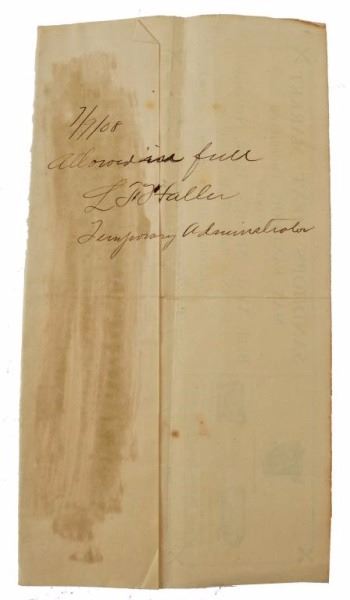 7/9/08
Allowed in full
L F Haller
Temporary Administrator